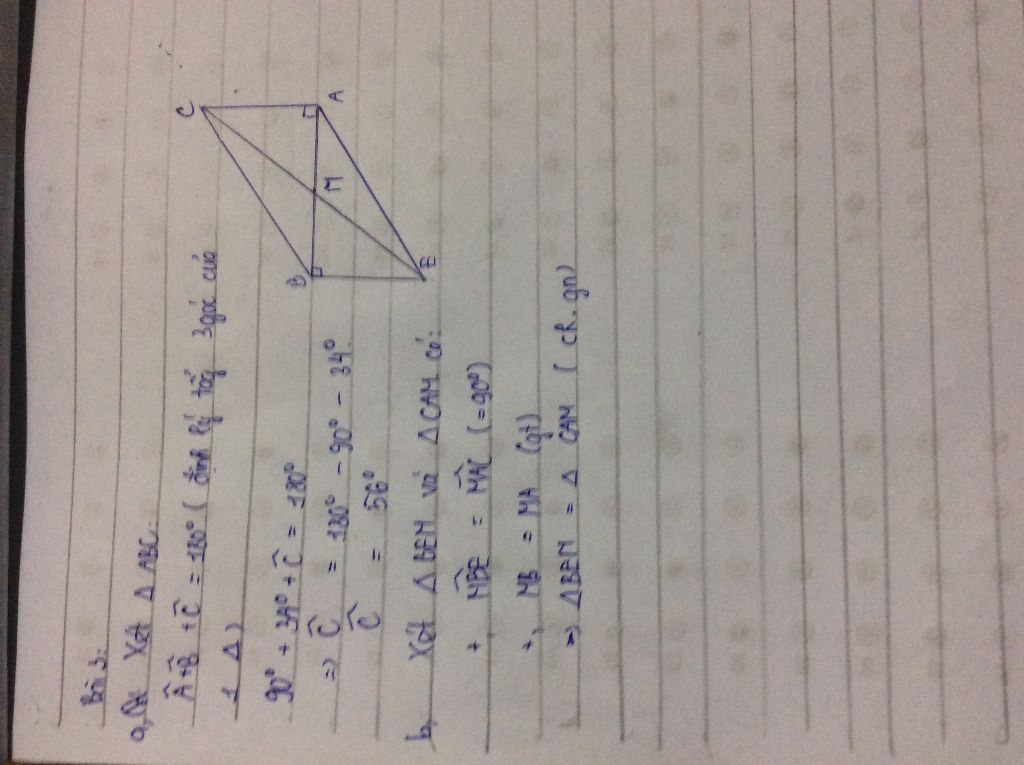 Bài 3:
a, Xét Δ ABC:
Â + B̂ + Ĉ = 180° ( định lý tổng 3 góc của
1 Δ )
90° + 34° + Ĉ = 180°
=> Ĉ = 180° - 90° - 34°
Ĉ = 56°
C
A
M
B
E
b, Xét Δ BEM và Δ CAM có:
+, M̂BE = M̂AC (= 90°)
+, MB = MA (gt)
=> Δ BEM = Δ CAM ( ch.gn)